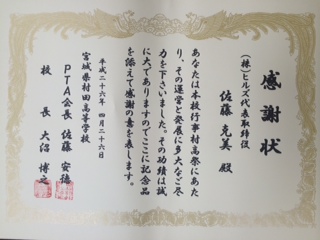 感謝状
(株)ヒルズ代表取締役
佐藤 克美 殿
あなたは本校行事村高祭にあた
り、その運営と発展に多大なご尽
力を下さいました。その功績は誠
に大でありますのでここに記念品
を添えて感謝の意を表します。
平成二十六年 四月二十六日
宮城県村田高等学校
PTA会長 佐藤 安徳
校長 大沼 博之